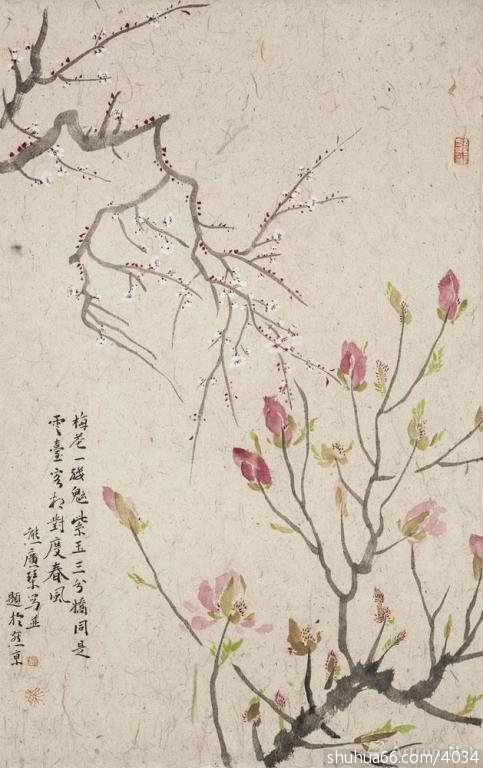 梅花一綫魁紫玉三分嬌同是
雲臺客相對度春風
熊廣琴寫並
題於燕京
shuhua66.com/4034